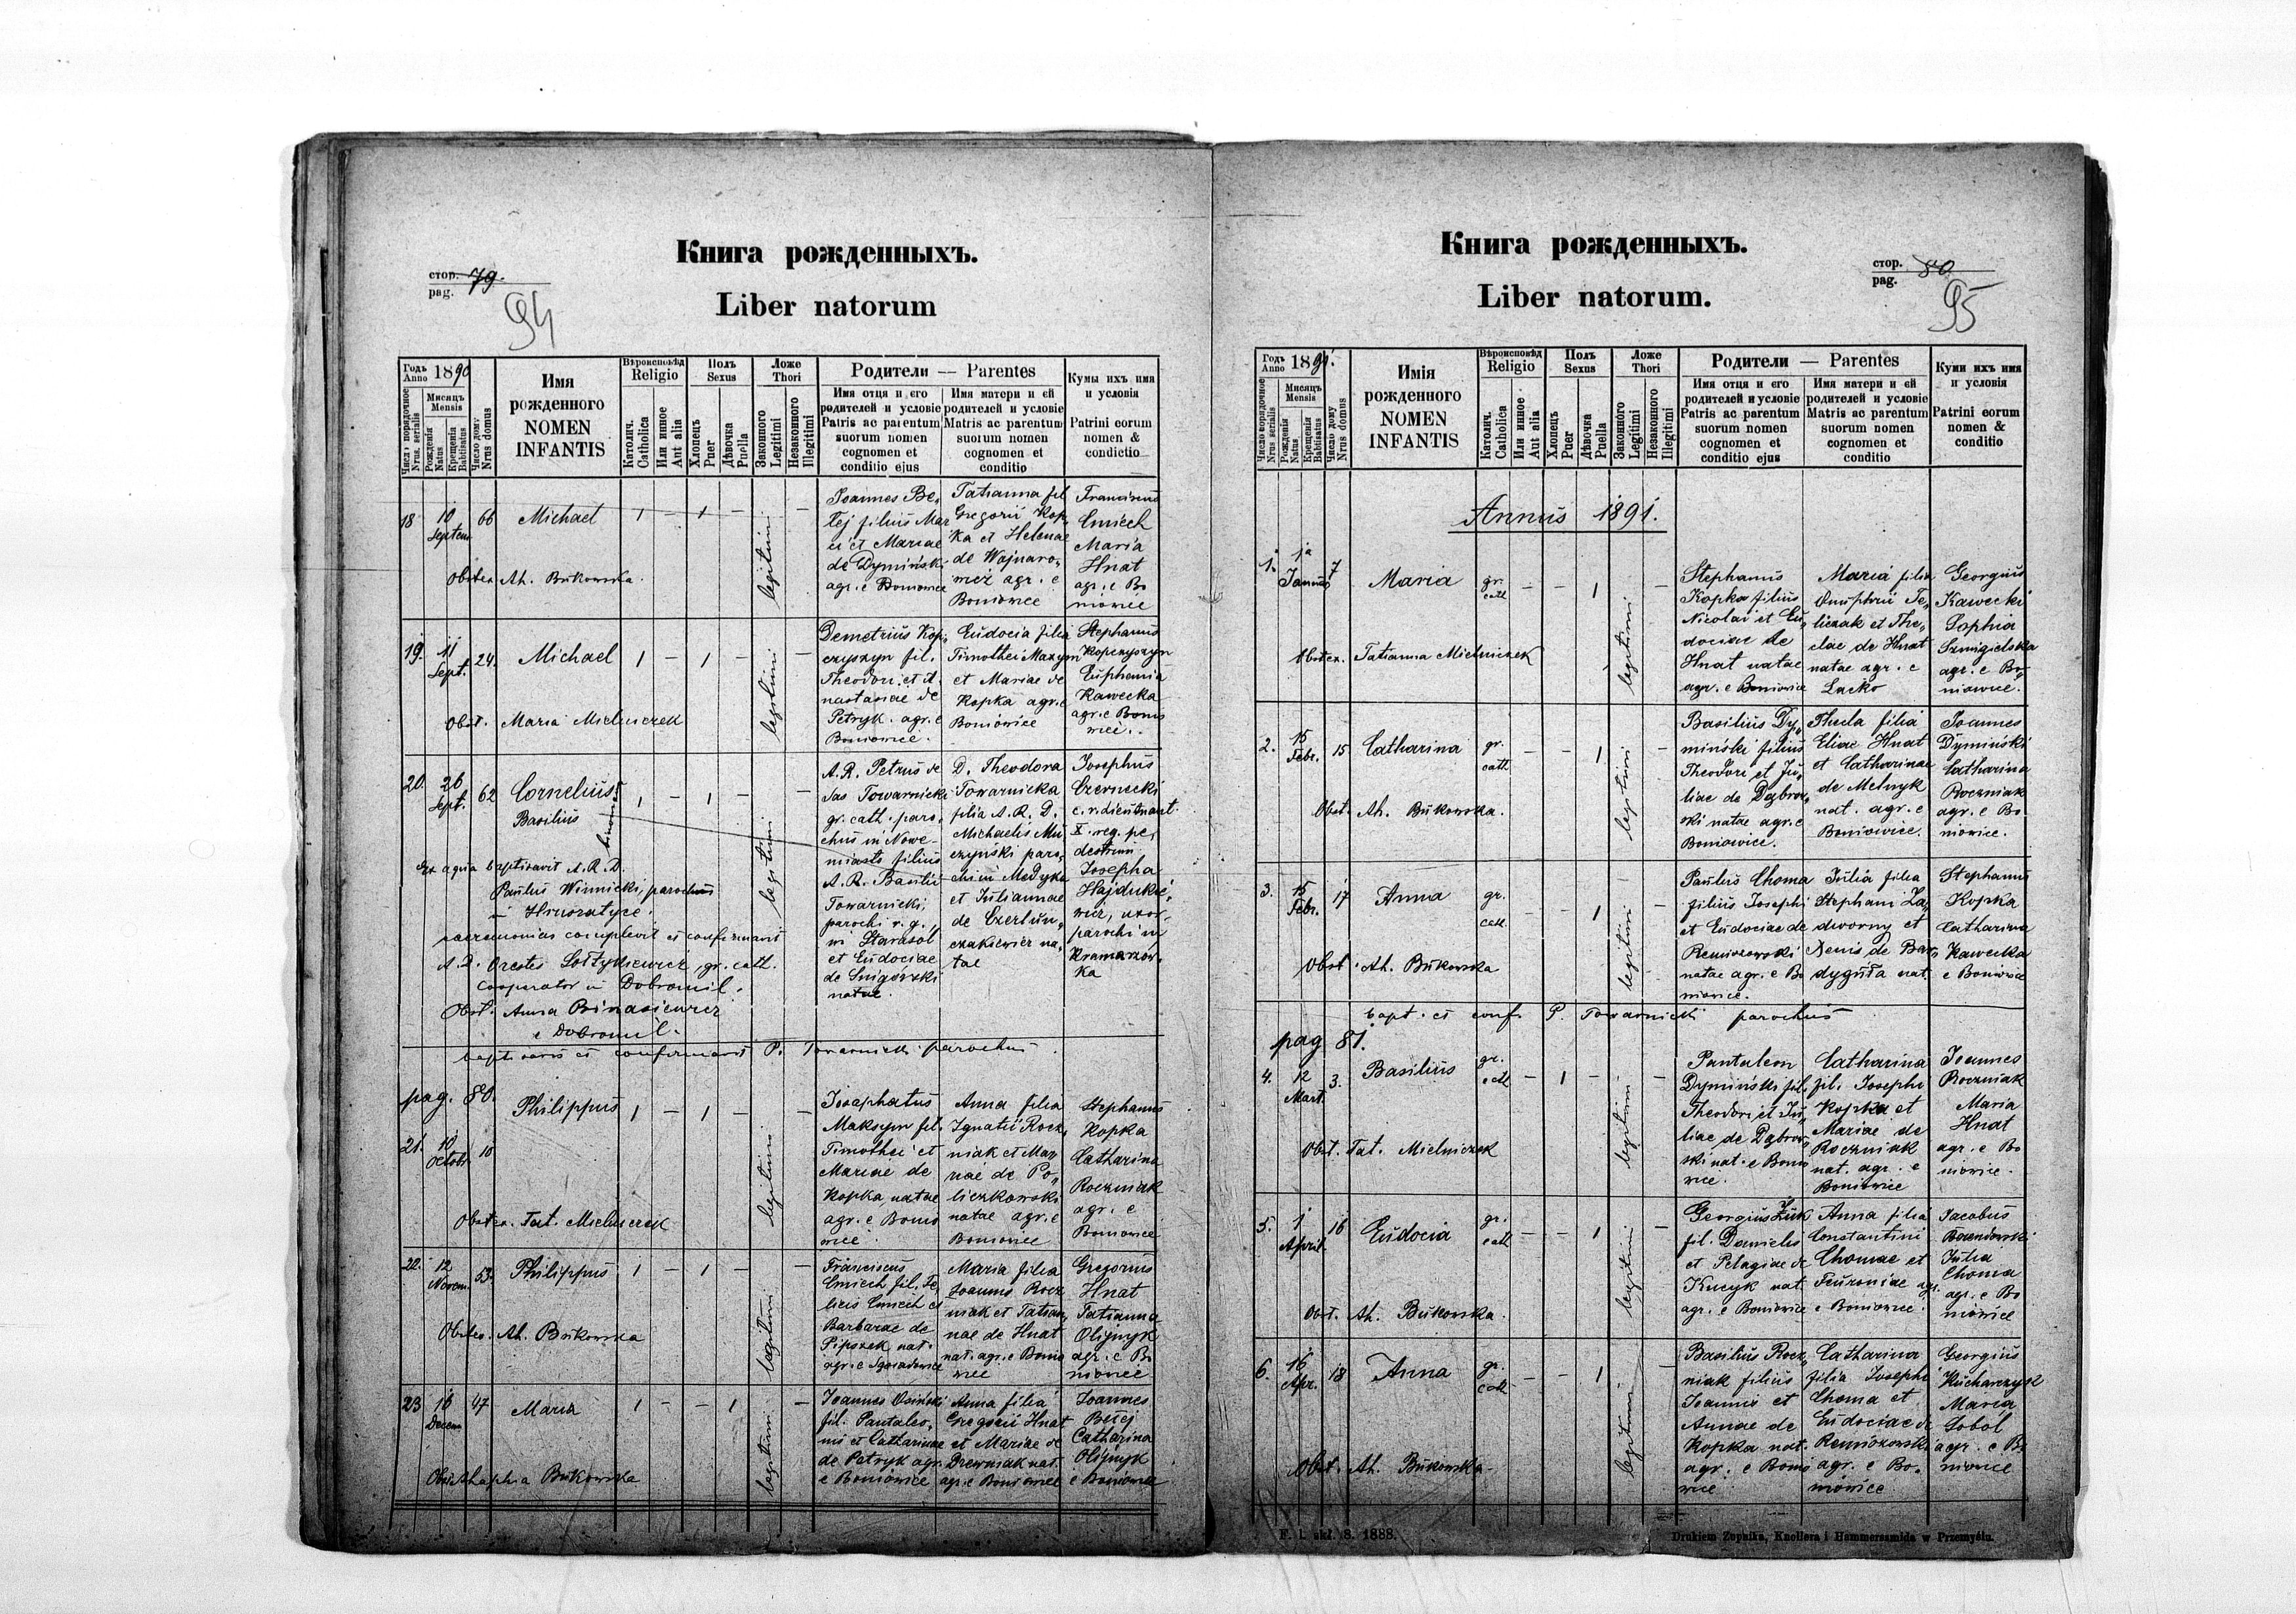 Книга рожденныхъ.
стор. 79.
pag.
94
Liber natorum
Годъ Anno 1890
Число порядочное Nrus. serialis
Мисяцъ Mensis
Рождения Natus
Крещения Babtisatus
Число дому Nrus domus
Имя
рожденного
NOMEN
INFANTIS
Вѣроисповѣд
Religio
Католич. Catholica
Или инное Aut alia
Полъ
Sexus
Хлопецъ Puer
Дѣвочка Puella
Ложе
Thori
Законного Legitimi
Незаконного Illegitimi
Родители — Parentes
Имя отця и его
родителей и условіе
Patris ac parentum
suorum nomen
cognomen et
conditio ejus
Имя матери и єй
родителей и условіе
Matris ac parentum
suorum nomen
cognomen et
conditio
Кумы ихъ имя
и условія
Patrini eorum
nomen &
condictio
18 10 Septem 66 Michael 1 – 1 – legitimi –
Joannes Be,
łej filius Mar
ci et Mariae
de Dymiński
agr. e Boniowice
Tatianna fil
Gregorii Kop,
ka et Helenae
de Wojnaro,
wicz agr. e
Boniowice
Franciscus
Cmiech
Maria
Hnat
agr. e Bo
niowice
Obstex. Ah. Bukowska.
19. 11 Sept. 24. Michael 1 – 1 – legitimi –
Demetrius Kop,
czyszyn fil.
Theodori et A.
nastasiae de
Petryk. agr. e
Boniowice.
Eudocia filia
Timothei Maxym
et Mariae de
Kopka agr. e
Boniowice
Stephanus
Kopczyszyn
Euphemia
Kawecka
agr. e Bonio
wice.
Obst. Maria Mielniczek
20. 26 Sept. 62 Cornelius 1 – 1 – legitimi
Basilius
binomius
A. R. Petrus de
Sas Towarnicki
gr. cath. paro,
chus in Nowe-
miasto filius
A. R. Basilii
Towarnicki,
parochi r. g.
in Starasol
et Eudociae
de Snigórski
natae.
D. Theodora
Towarnicka
filia A. R. D.
Michaelis Mu
czyński paro,
chi in Medyka
et Juliannae
de Ezerlun,
czakiewicz na,
tae
Josephus
Czernecki
c. r. lieutnant
X. reg. pe,
destrium
Josepha
Hajdukie,
wicz, uxor
parochi in
Kramarzow,
ka
Ex aqua baptisavit A. R. D.
Paulus Winnicki, parochus
in Hruszatyce.
caeremonias complevit et confirmavit
A. D. Orestes Sołtykiewicz, gr. cath.
cooperator in Dobromil.
Obst. Anna Binasiewicz
e Dobromil.
baptisavit et confirmavit P. Towarnicki parochus
pag. 80.
21. 10 Octobr 10 Philippus 1 – 1 – legitimi –
Josaphatus
Maksym fil.
Timothei et
Mariae de
Kopka natae
agr. e Bonio
wice
Anna filia
Ignatii Rocz,
niak et Mar
nae de Po,
liczkowski
natae agr. e
Boniowice
Stephanus
Kopka
Catharina
Roczniak
agr. e
Boniowice
Obstex. Tat. Mielniczek
22. 12 Novem. 53. Philippus 1 – 1 – legitimi –
Franciscus
Cmiech fil. Fe,
licis Cmiech et
Barbarae de
Pipszek nat.
Maria filia
Joannis Rocz
niak et Tatian,
nae de Hnat
nat. agr. e Bonio
wice
Gregorius
Hnat
Tatianna
Olijnyk
agr. e Bo
niowice
Obstex. Ah. Bukowska
23 16 Decem 47 Maria 1 – – 1 legitimi –
Joannes Osiński
fil. Pantaleo,
nis et Catharinae
de Petryk agr.
e Boniowice
Anna filia
Gregorii Hnat
et Mariae de
Drewniak nat.
agr. e Boniowice
Joannes
Bełej
Catharina
Olijnyk
e Boniowice
Obst. Ahaphia Bukowska
Книга рожденныхъ.
стор. 80
pag.
95
Liber natorum.
Годъ Anno 1891.
Число порядочное Nrus serialis
Мисяцъ Mensis
Рождения Natus
Крещения Babtisatus
Число дому Nrus domus
Имія
рожденного
NOMEN
INFANTIS
Вѣроисповѣд
Religio
Католич. Catholica
Или инное Aut alia
Полъ
Sexus
Хлопецъ Puer
Дѣвочка Puella
Ложе
Thori
Законного Legitimi
Незаконного Illegitimi
Родители — Parentes
Имя отця и его
родителей и условіе
Patris ac parentum
suorum nomen
cognomen et
conditio ejus
Имя матери и єй
родителей и условіе
Matris ac parentum
suorum nomen
cognomen et
conditio
Куми ихъ имя
и условія
Patrini eorum
nomen &
conditio
Annus 1891.
1. 1a Januar 7 Maria gr. cath – – 1 legitimi –
Stephanus
Kopka filius
Nicolai et Eu,
dociae de
Hnat natae
agr. e Boniowice
Maria filia
Onuphrii Te,
liczak et The,
clae de Hnat
natae agr. e
Lacko
Georgius
Kawecki
Sophia
Szmigielska
agr. e Bo,
niowice.
Obstex. Tatianna Mielniczek
2. 15 Febr. 15 Catharina gr. cath – – 1 legitimi –
Basilius Dy,
miński filius
Theodori et Ju,
liae de Dąbrow,
ski natae agr. e
Boniowice.
Thecla filia
Eliae Hnat
et Catharinae
de Melnyk
nat. agr. e
Boniowice.
Joannes
Dymiński
Catharina
Roczniak
agr. e Bo-
niowice.
Obst. Ah. Bukowska.
3. 15 Febr. 17 Anna gr. cath. – – 1 legitimi –
Paulus Choma
filius Josephi
et Eudociae de
Remiszowski
natae agr. e Bo
niowice.
Julia filia
Stephani Za,
dworny et
Xenis de Bar,
dyguła nat.
Stephanus
Kopka
Catharina
Kawecka
e Boniowice
Obst. Ah. Bukowska
bapt. et conf. P. Towarnicki parochus
pag 81.
4. 12 Mart. 3. Basilius gr. cath – 1 – legitimi –
Pantaleon
Dymiński fil.
Theodori et Ju,
liae de Dąbrow,
ski nat. e Bonio
wice.
Catharina
fil. Josephi
Kopka et
Mariae de
Roczniak
nat. agr. e
Boniowice
Joannes
Roczniak
Maria
Hnat
agr. e Bo
niowice.
Obst. Tat. Mielniczek
5. 1 April. 16 Eudocia gr. cath – – 1 legitimi –
Georgius Żuk
fil. Danielis
et Pelagiae de
Kucyk nat.
agr. e Boniowice
Anna filia
Constantini
Chomae et
Feuroniae agr.
e Boniowice.
Jacobus
Julia
Choma
agr. e Bo
niowice
Obst. Ah. Bukowska.
6. 16 Apr. 18 Anna gr. cath – – 1 legitimi –
Basilius Rocz,
niak filius
Joannis et
Annae de
Kopka nat.
agr. e Bonio
wice
Catharina
filia Josephi
Choma et
Eudociae de
Remiszowski
agr. e Bo.
niowice.
Georgius
Kucharczyk
Maria
Sobol
agr. e Bo
niowice
Obst. Ah. Bukowska
F. l. skł. 8. 1888.
Drukiem Żupnika, Knollera i Hammerszmida w Przemyślu.